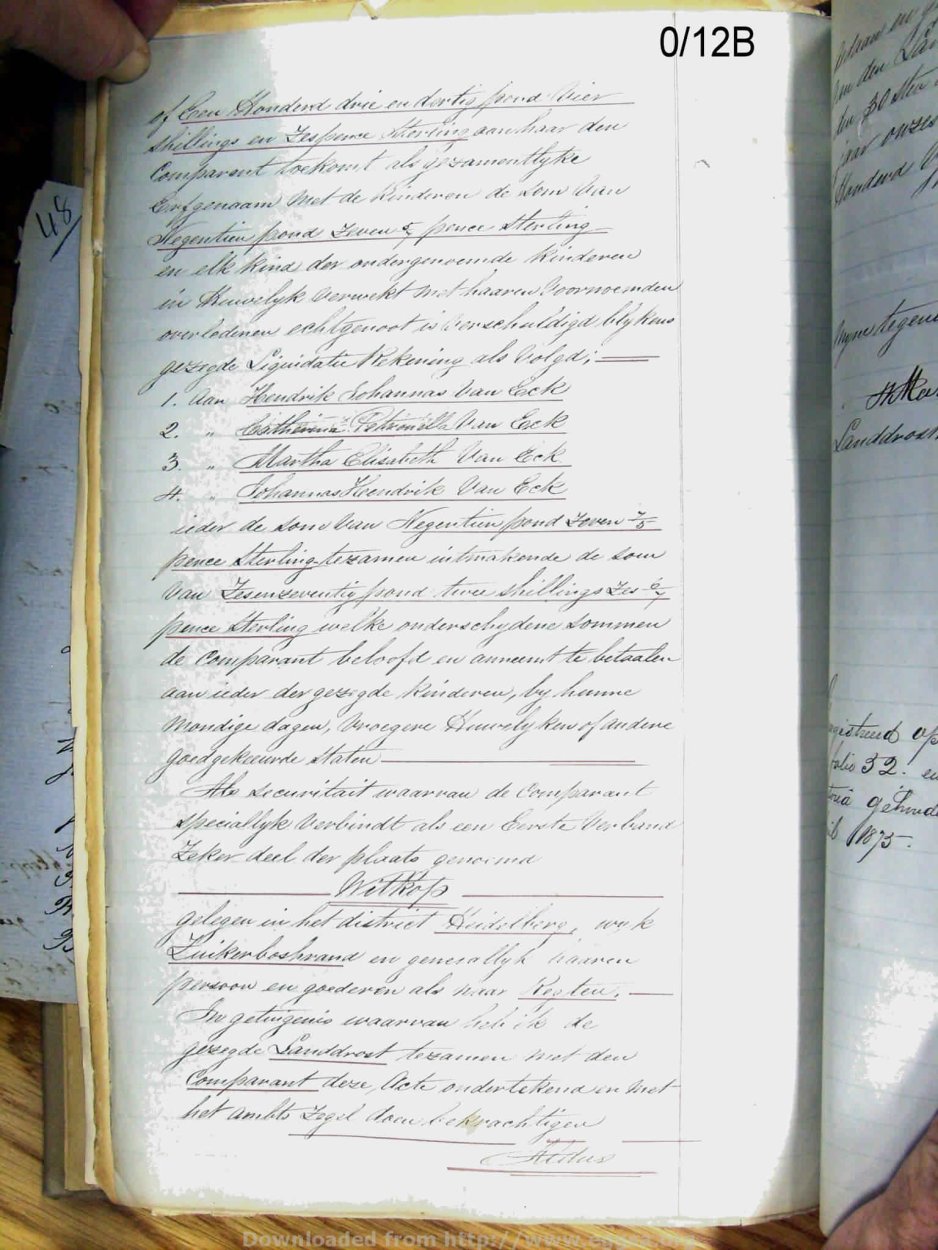 0/12B
of Een Honderd drie en dertig pond Vier
Shillings en Zespence Sterling aan haar den
Comparant toekomt als gezamentlyke
Erfgenaam Met de Kinderen de Som Van
Negentien pond Zeven pence Sterling
en elk Kind der ondergenoemde Kinderen
in Huwelyk Verwekt met haaren Voornoemden
overledenen echtgenoot is Verschuldigd, blykens
gezegde Liquidatie Rekening als Volgd;
1. Aan Hendrik Johannas Van Eck
2. " Catherina Petronella Van Eck
3. " Martha Elisabeth Van Eck
4. " Johannas Hendrik Van Eck
ieder de Som Van Negentien pond Zeven 7/5
pence Sterling tezamen uitmakende de Som
Van Zesenzeventig pond twee Shillings Zes
pence Sterling welke onderschydene Sommen
de Comparant beloofd en anneemt te betaalen
aan ieder der gezegde Kinderen, by hunne
Mondige dagen, Vroegere Huwelykens of andere
goedgekeurde Staten
Als Securitait waarvan de Comparant
Speciallyk Verbindt als een Eerste Verband
Zeker deel der plaats genoemd
Witkop
gelegen in het district Heidelberg, wyk
Zuikerboshrand en generallyk haaren
persoon en goederen als naar Regten.
In getuigenis waarvan heb ik de
gezegde Landdrost tezamen met den
Comparant deze, Acte ondertekend en met
het Ambts Zegel doen bekrachtigen
Aldus
48
Honderd
Landdrost
folio 32. en
1875
Downloaded from http://www.eggsa.org